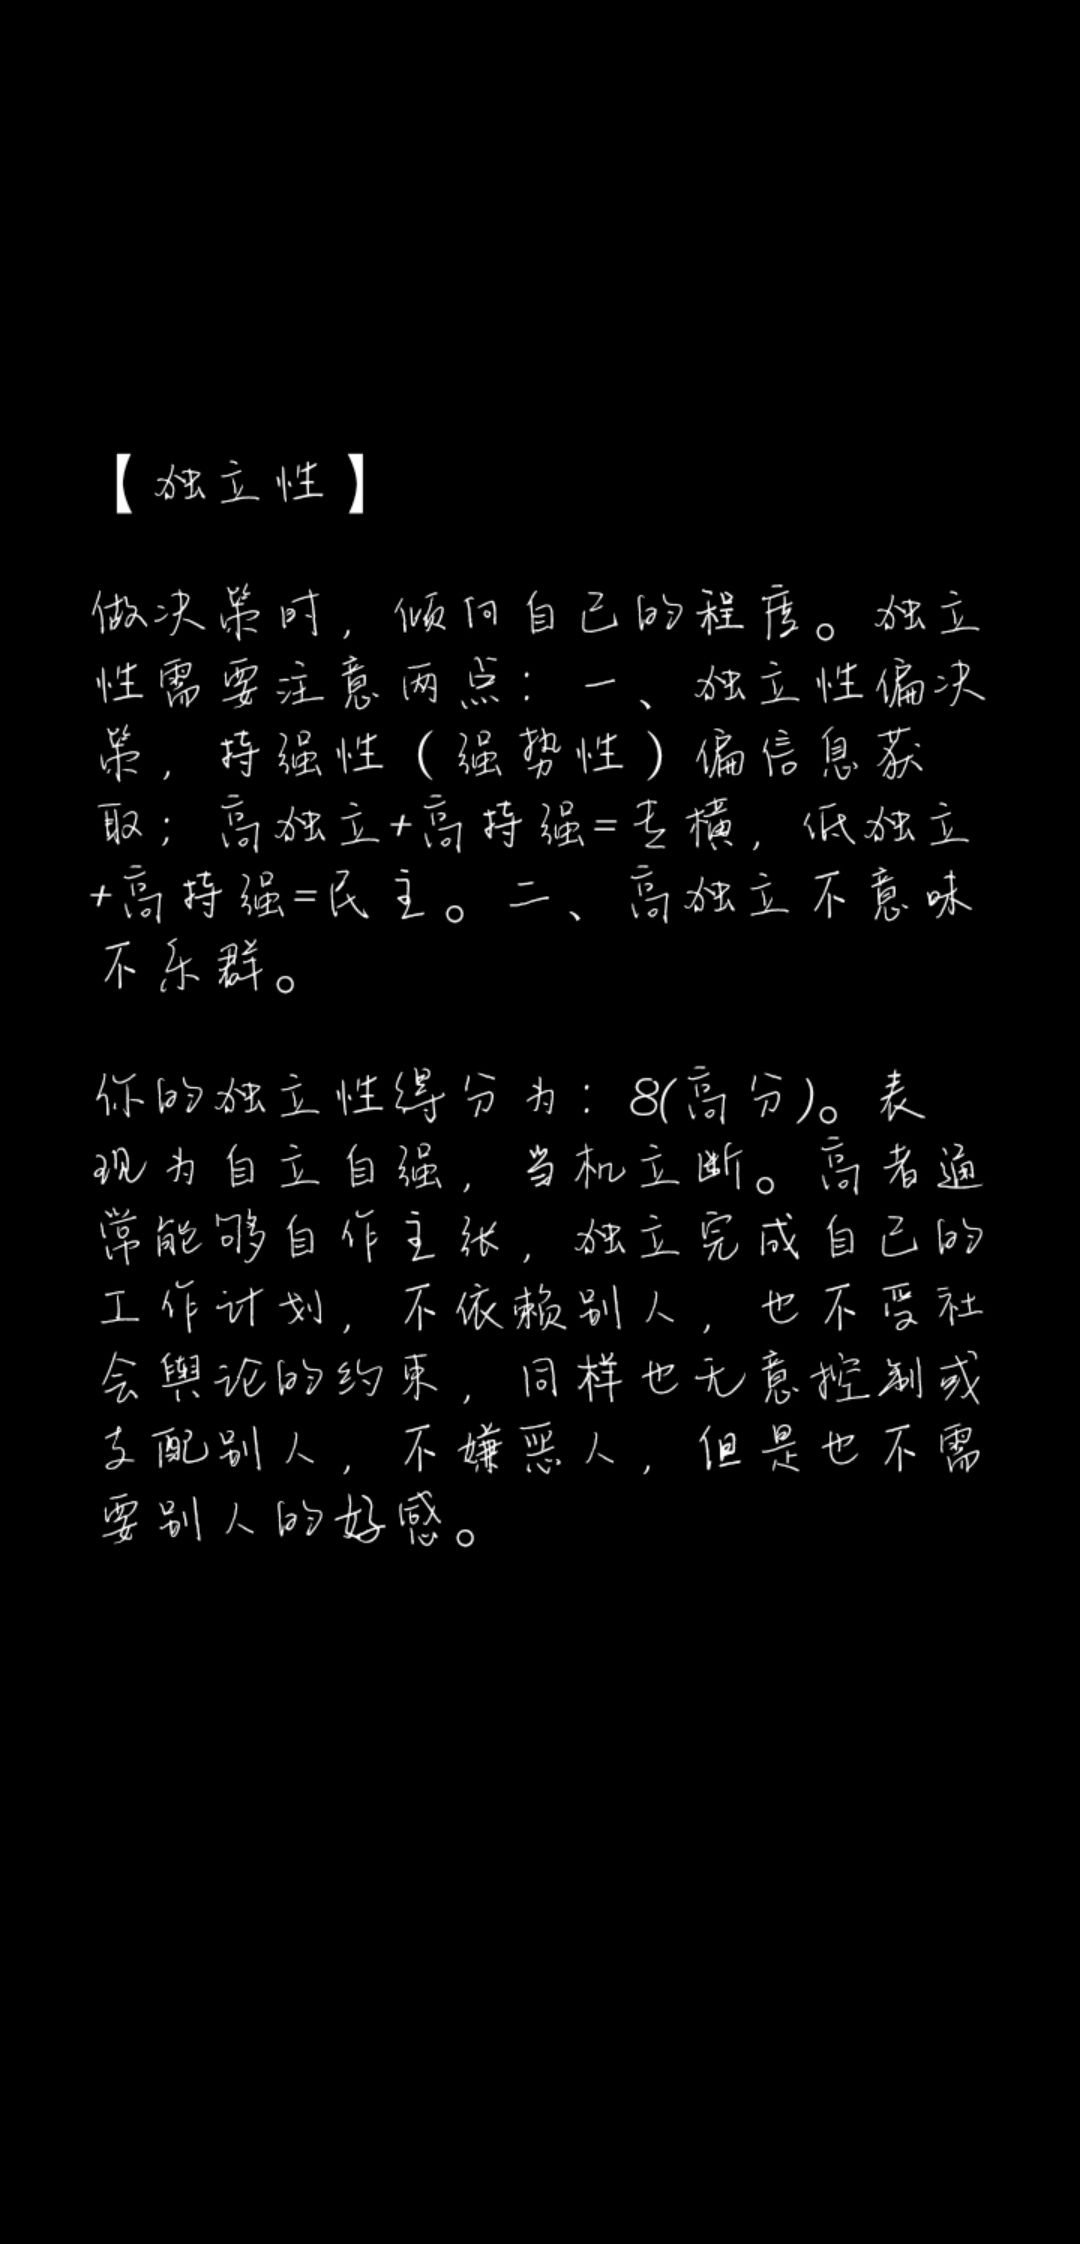 【独立性】
做决策时，倾向自己的程度。独立
性需要注意两点：一、独立性偏决
策，持强性（强势性）偏信息获
取；高独立+高持强=专横，低独立
+高持强=民主。二、高独立不意味
不乐群。
你的独立性得分为：8(高分)。表
现为自立自强，当机立断。高者通
常能够自作主张，独立完成自己的
工作计划，不依赖别人，也不受社
会舆论的约束，同样也无意控制或
支配别人，不嫌恶人，但是也不需
要别人的好感。